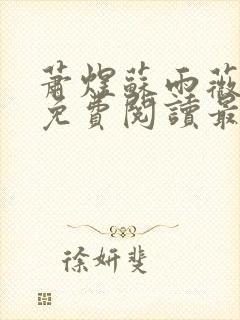 蕭煜蘇雨薇
免費閱讀最
徐妍斐